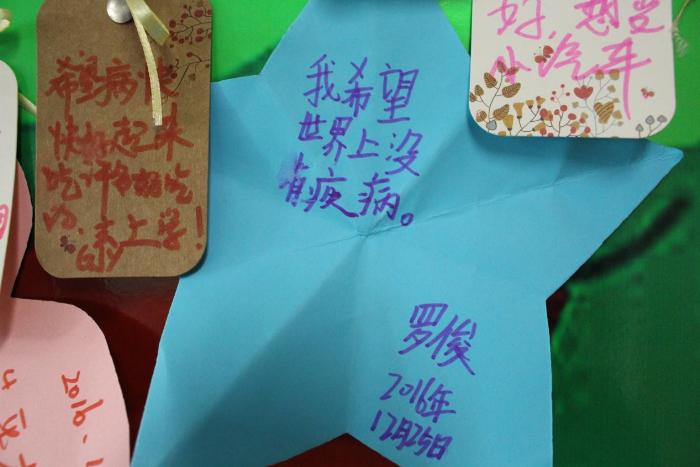 希望病快
快好起来
吃许多好吃
的。来上学！
我希望
世界上没
有疾病。
罗俊
2016年
12月25日
好，想要
小汽车
2016.1